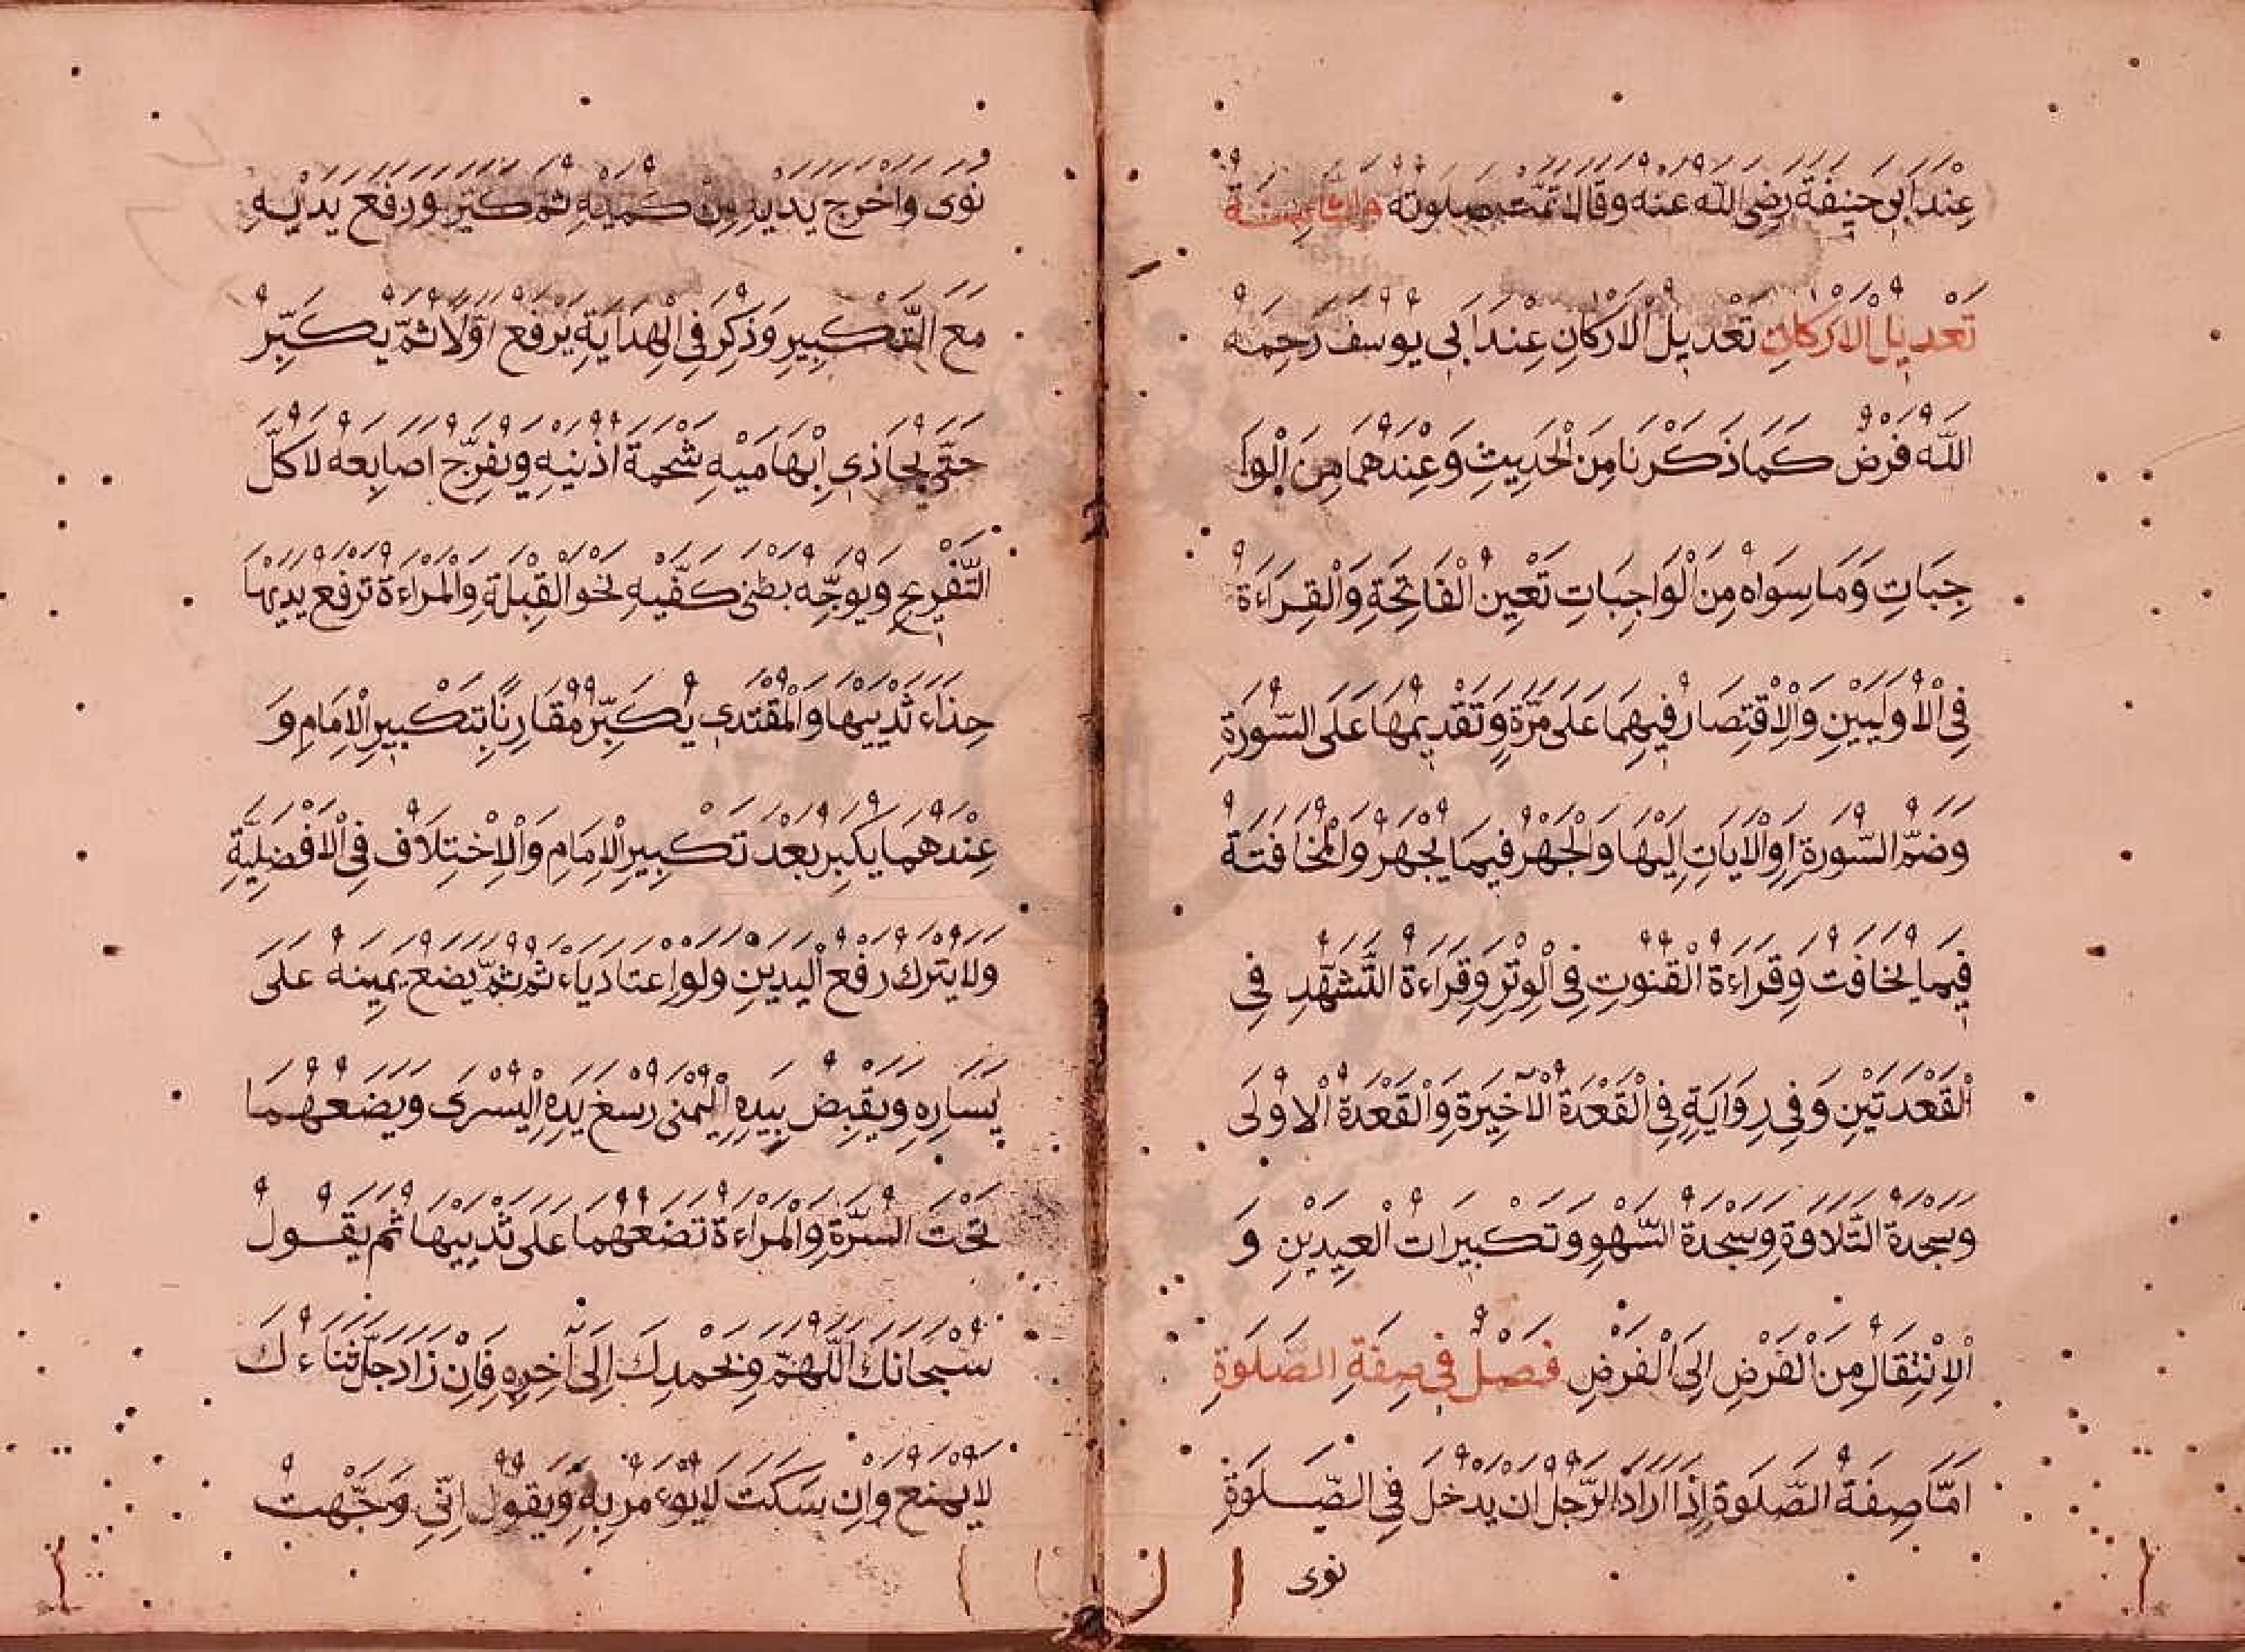 عِنْدَ اَبِي حَنِيفَةَ رَضِيَ اللّٰه عَنْه وَقَالَ تَمَّت صَلوتُه وَالثَّامِنَةُ
تَعْدِيلُ الْاَرْكَانِ تَعْدِيلُ الْاَرْكَانِ عِنْدَ اَبِي يُوسُفَ رَحِمَهُ
اللّٰه فَرْضٌ كَمَا ذَكَرْنَا مِنَ الْحَدِيثِ وَعِنْدَهُمَا مِنَ الْوَا
جِبَاتِ وَمَا سِوَاهُ مِنَ الْوَاجِبَاتِ تَعْيِنُ الْفَاتِحَةِ وَالْقِرَاءَةُ
فِي الْاُولَيَيْنِ وَالْاِقْتِصَارُ فِيهِمَا عَلَى مَرَّةٍ وَتَقْدِيمُهَا عَلَى السُّورَةِ
وَضَمُّ السُّورَةِ اَوِ الْاٰيَاتِ اِلَيْهَا وَالْجَهْرُ فِيمَا يُجْهَرُ وَالْمُخَافَتَةُ
فِيمَا يُخَافَتُ وَقِرَاءَةُ الْقُنُوتِ فِي الْوِتْرِ وَقِرَاءَةُ التَّشَهُّدِ فِي
الْقَعْدَتَيْنِ وَفِي رِوَايَةٍ فِي الْقَعْدَةِ الْآخِيرَةِ وَالْقَعْدَةُ الْاُوْلَى
وَسَجْدَةُ التِّلَاوَةِ وَسَجْدَةُ السَّهْوِ وَتَكْبِيرَاتُ الْعِيدَيْنِ وَ
الْاِنْتِقَالُ مِنَ الْفَرْضِ اِلَى الْفَرْضِ فَصْلٌ فِي صِفَةِ الصَّلٰوةِ
اَمَّا صِفَةُ الصَّلَوةِ اِذَا اَرَادَ الرَّجُلُ اَنْ يَدْخُلَ فِي الصَّلَوةِ
نوى
نَوَى وَاَخْرَجَ يَدَيْهِ مِنْ كُمَّيْهِ ثُمَّ كَبَّرَ وَرَفَعَ يَدَيْهِ
مَعَ التَّكْبِيرِ وَذَكَرَ فِي الْهِدَايَةِ يَرْفَعُ اَوَّلًا ثُمَّ يُكَبِّرُ
حَتَّى يُحَاذِيَ اِبْهَامَيْهِ شَحْمَةَ اُذُنَيْهِ وَيُفَرِّجُ اَصَابِعَهُ لَا كُلَّ
التَّفْرِيجِ وَيُوَجِّهُ بَطْنَ كَفَّيْهِ نَحْوَ الْقِبْلَةِ وَالْمَرْاءَةُ تَرْفَعُ يَدَيْهَا
حِذَاءَ ثَدْيَيْهَا وَالْمُقْتَدِي يُكَبِّرُ مُقَارِنًا بِتَكْبِيرِ الْاِمَامِ وَ
عِنْدَهُمَا يُكَبِّرُ بَعْدَ تَكْبِيرِ الْاِمَامِ وَالْاِخْتِلَافُ فِي الْاَفْضَلِيَّةِ
وَلَا يَتْرُكُ رَفْعَ الْيَدَيْنِ وَلَوْ اِعْتَادَ يَاءْثَمُ ثُمَّ يَضَعُ يَمِينَهُ عَلَى
يَسَارِهِ وَيَقْبِضُ بِيَدِهِ الْيُمْنَى رُسْغَ يَدِهِ الْيُسْرَى وَيَضَعُهُمَا
تَحْتَ السُّرَّةِ وَالْمَرْاءَةُ تَضَعُهُمَا عَلَى ثَدْيَيْهَا ثُمَّ يَقُولُ
سُبْحَانَكَ اللّٰهُمَّ وَبِحَمْدِكَ اِلَى آخِرِهِ فَاِنْ زَادَ جَلَّ ثَنَاءُكَ
لَا يُمْنَعُ وَاِنْ سَكَتَ لَا يُوءْمَرُ بِهِ وَيَقُولُ اِنِّي وَجَّهْتُ